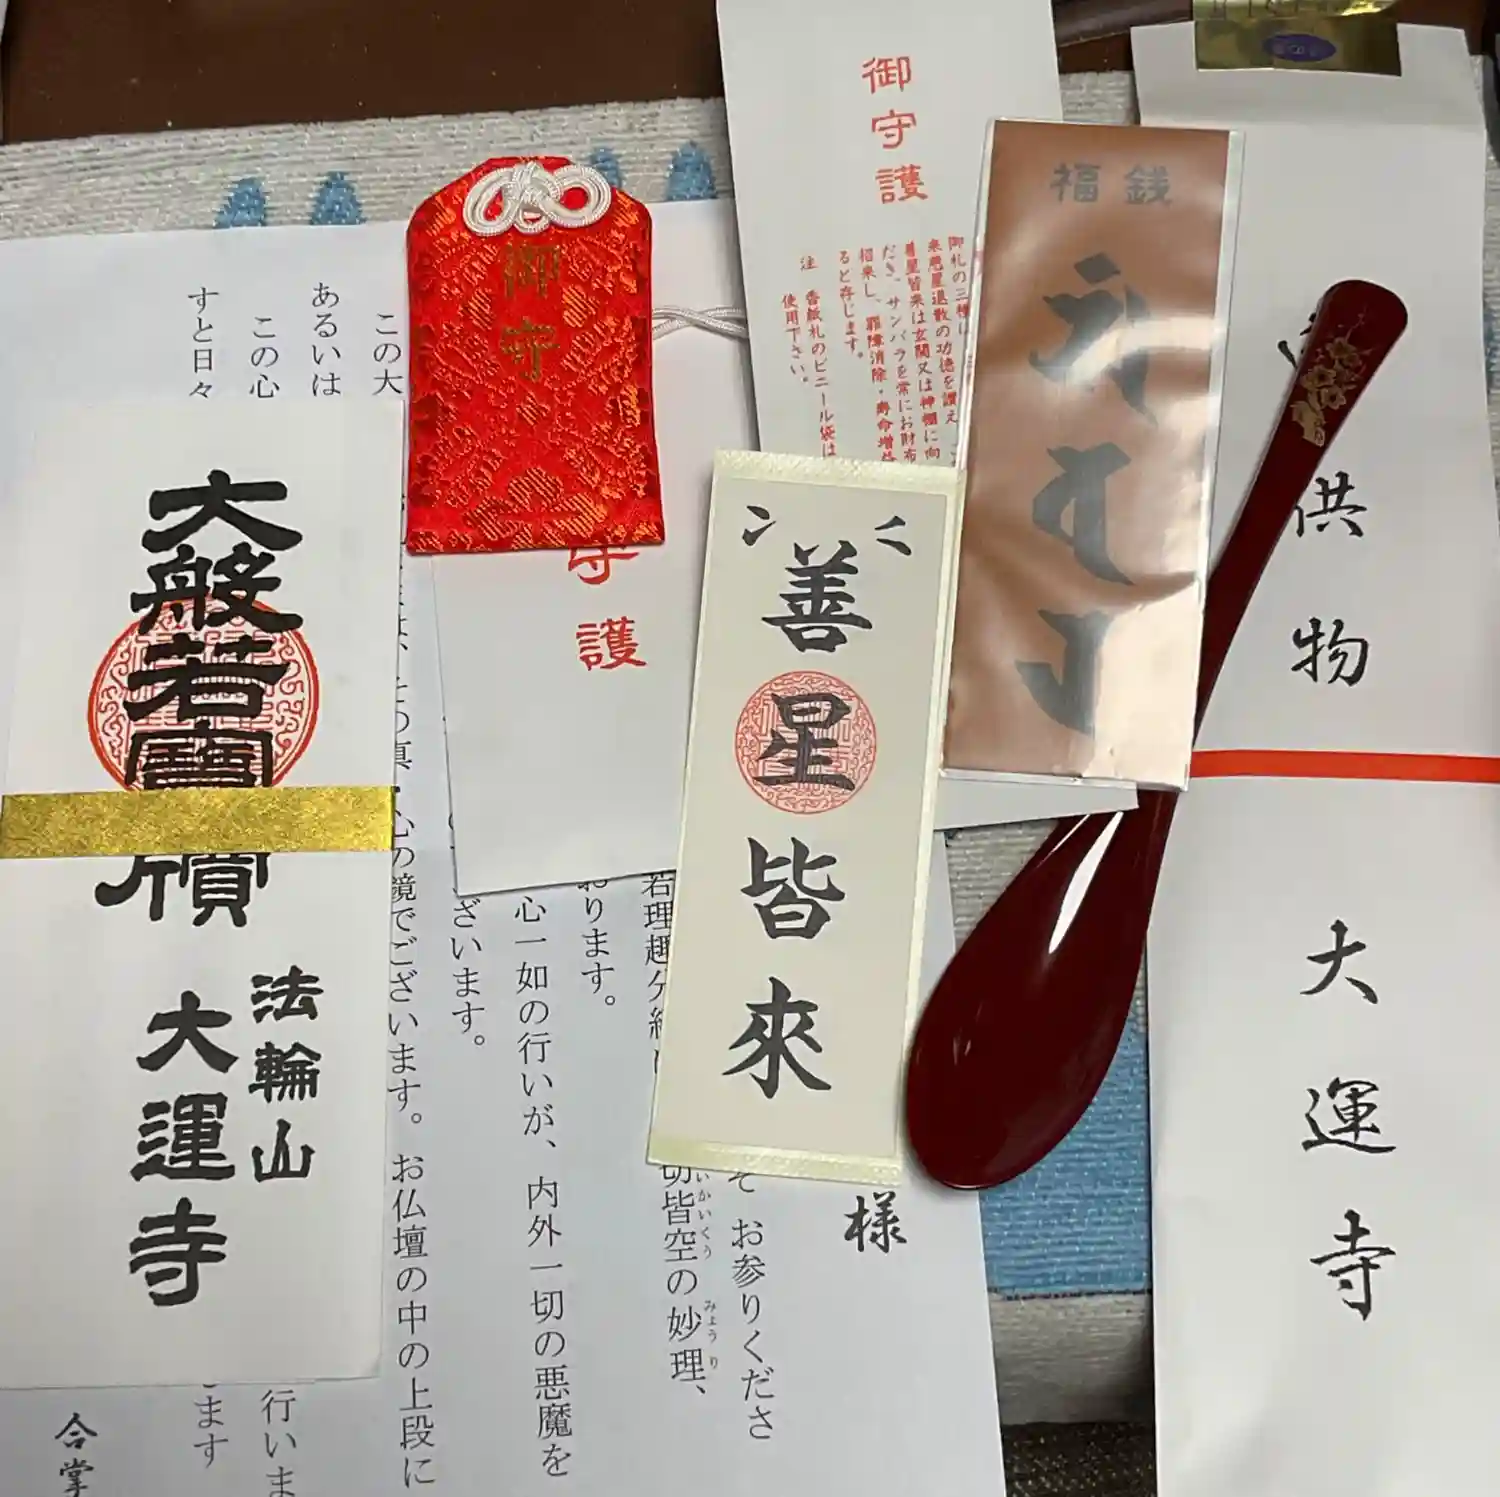 御守護
御札の三種に
来悪星退散の功徳を讃え
善星皆来は玄関又は神棚に向
だき、サンバラを常にお財布
招来し、罪障消除・寿命増益
ると存じます。
注 香紙札のビニール袋は
使用下さい。
福銭
供物
大運寺
御守
守護
善星皆來
大般若寶牘
法輪山
大運寺
この大
あるいは
この心
すと日々
様
そ お参りくださ
切皆空の妙理、
いかいくう
みょうり
若理趣分経
おります。
心一如の行いが、内外一切の悪魔を
ざいます。
心の鏡でございます。お仏壇の中の上段に
行いま
ます
合掌